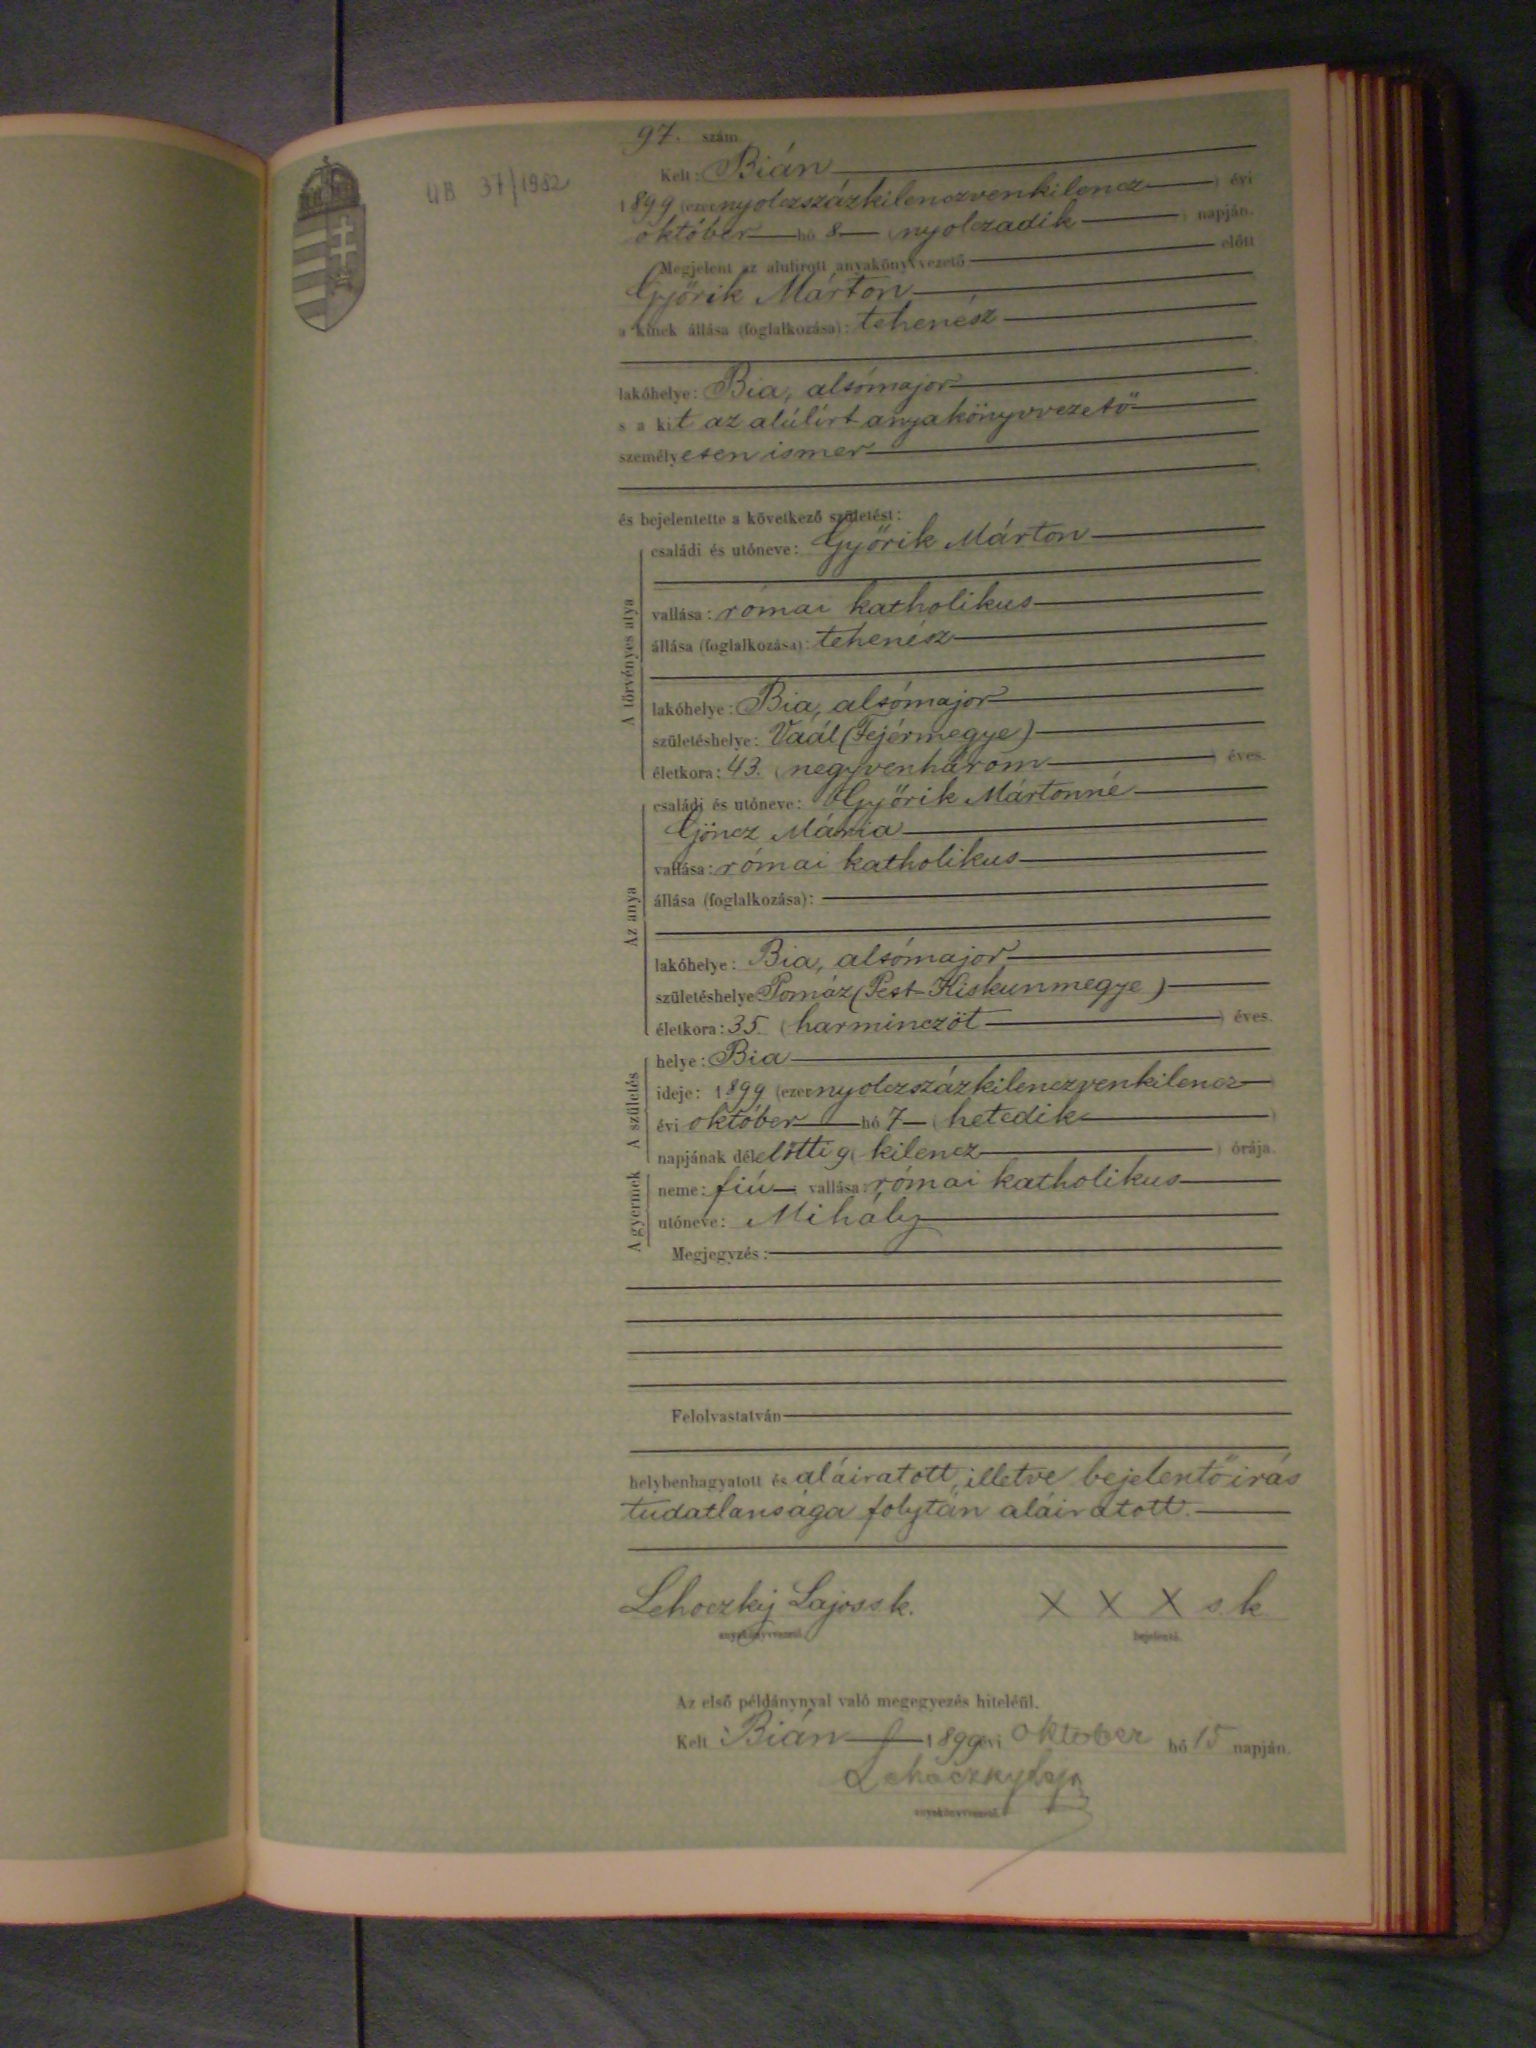 97. szám
ÚB 37/1982
Kelt: Bián
1899 (ezernyolczszázkilenczvenkilencz) évi
október hó 8 (nyolczadik) napján.
Megjelent az alulirott anyakönyvvezető előtt
Győrik Márton
a kinek állása (foglalkozása): tehenész
lakóhelye: Bia, alsómajor
s a kit az alúlírt anyakönyvvezető
személyesen ismer
és bejelentette a következő születést:
A törvényes atya
családi és utóneve: Győrik Márton
vallása: római katholikus
állása (foglalkozása): tehenész
lakóhelye: Bia, alsómajor
születéshelye: Vaál (Fejérmegye)
életkora: 43. (negyvenhárom) éves.
Az anya
családi és utóneve: Győrik Mártonné
Göncz Mária
vallása: római katholikus
állása (foglalkozása):
lakóhelye: Bia, alsómajor
születéshelye Pomáz (Pest-Kiskunmegye)
életkora: 35. (harminczöt) éves.
A születés
helye: Bia
ideje: 1899 (ezernyolczszázkilenczvenkilencz)
évi október hó 7 (hetedik)
napjának délelőtti 9 (kilencz) órája.
A gyermek
neme: fiú vallása: római katholikus
utóneve: Mihály
Megjegyzés:
Felolvastatván
helybenhagyatott és aláiratott, illetve bejelentő irás
tudatlansága folytán aláiratott.
Lehoczky Lajos s.k. X X X s.k
anyakönyvvezető. bejelentő.
Az első példánynyal való megegyezés hiteléül.
Kelt Bián 1899 évi október hó 15 napján.
Lehoczky Lajos
anyakönyvvezető.